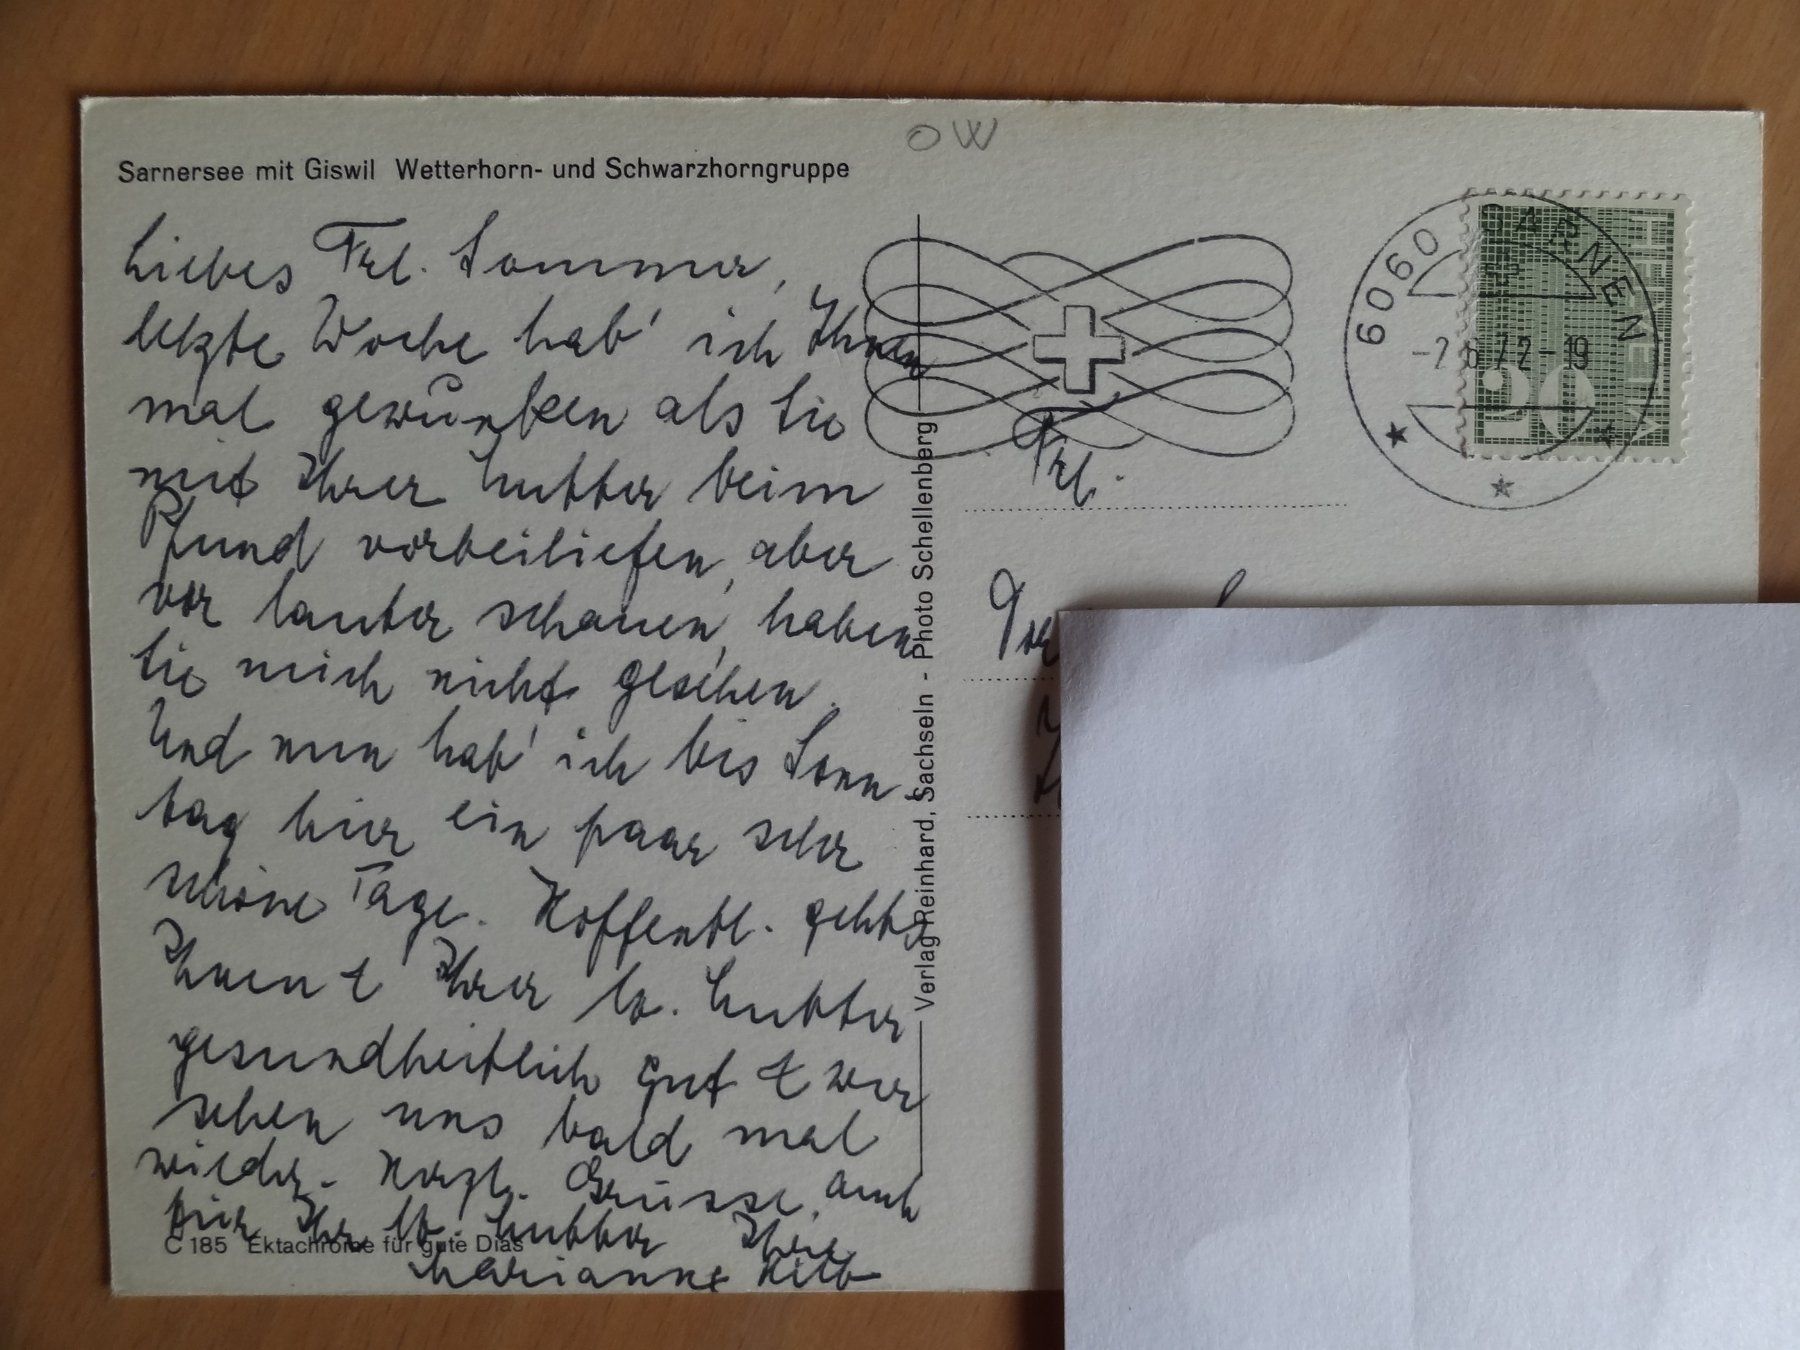 OW
Sarnersee mit Giswil Wetterhorn- und Schwarzhorngruppe
Liebes Frl. Sommer,
letzte Woche hab' ich Ihnen
mal gewunken als Sie
mit Ihrer Mutter beim
Pfund vorbeiliefen, aber
vor lauter schauen, haben
Sie mich nicht gesehen.
Und nun hab' ich bis Sonn
tag hier ein paar sehr
schöne Tage. Hoffentl. gehts
Ihnen & Ihrer lb. Mutter
gesundheitlich gut & wir
sehen uns bald mal
wieder. Herzl. Grüsse, auch
für Ihr lb. Mutter Ihre
Marianne
C 185 Ektachrome für gute Dias
Verlag Reinhard, Sachseln - Photo Schellenberg
6060 SARNEN
-7.6.72-19
HELVETIA
20
Frl.